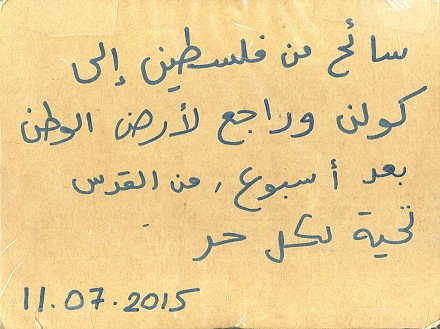 سائح من فلسطين إلى
كولن وراجع لأرض الوطن
بعد أسبوع, من القدس
تحية لكل حر
11.07.2015